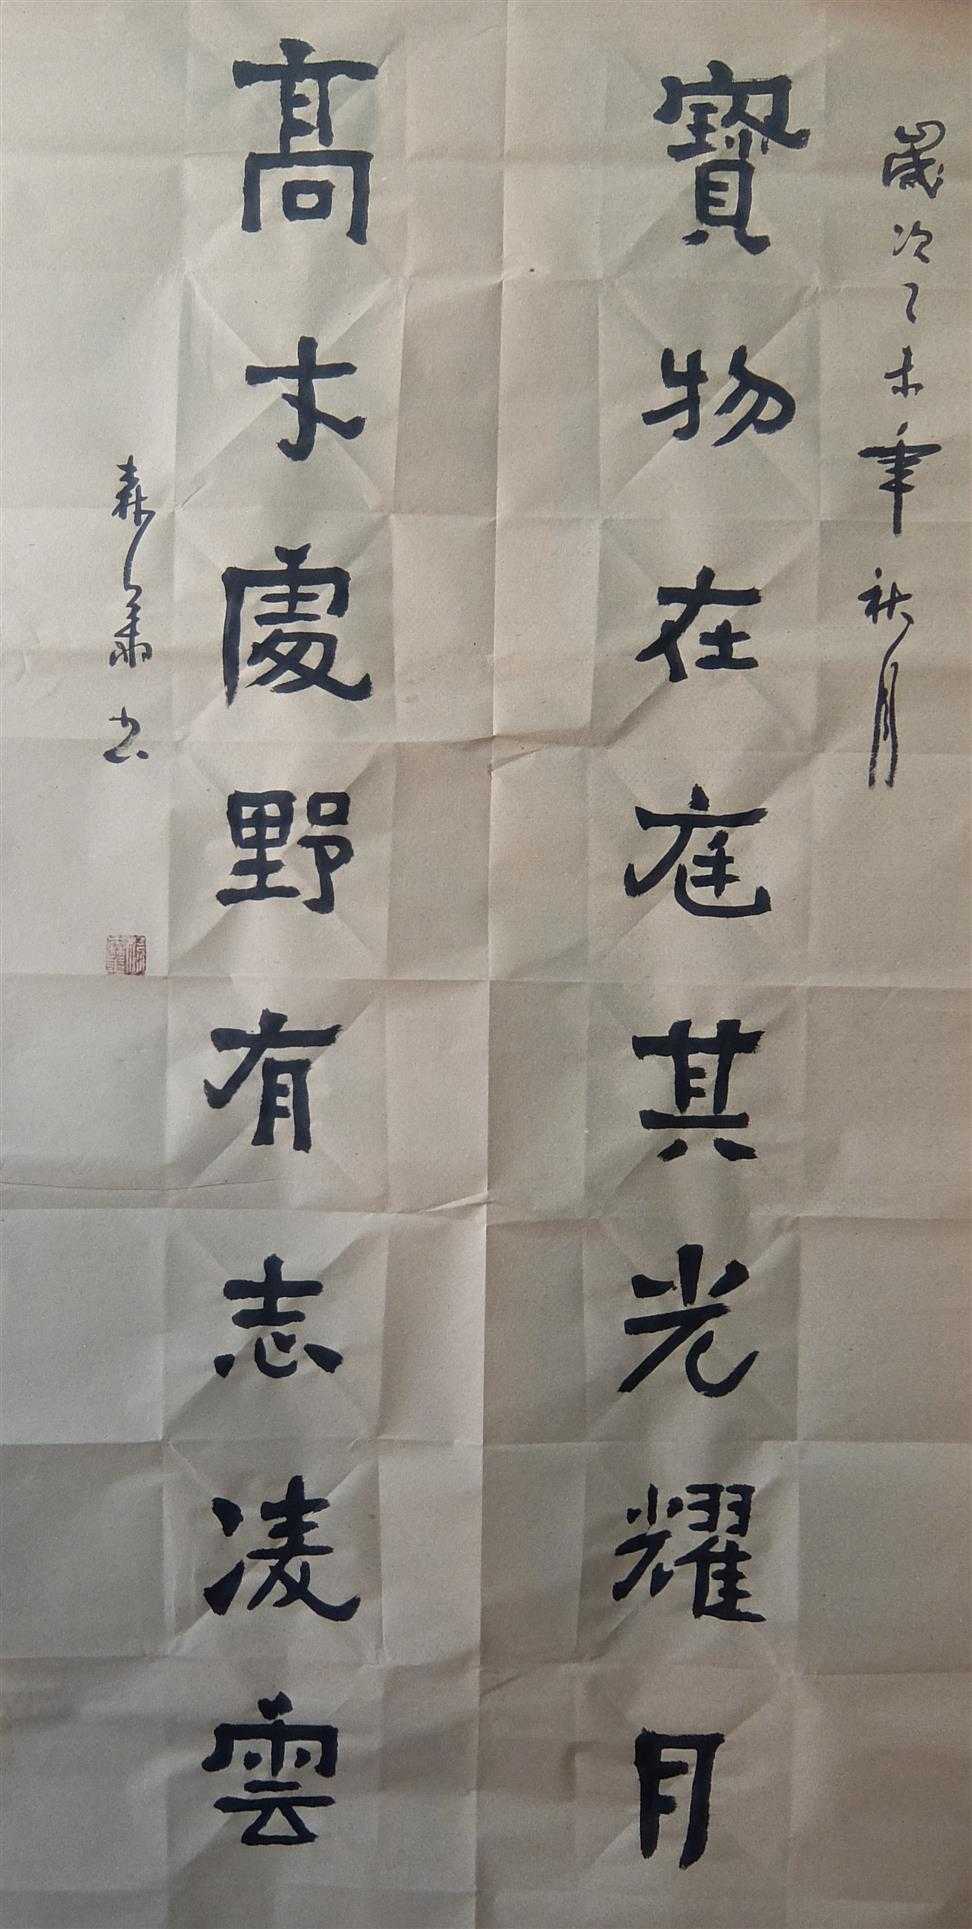 歲次乙未年秋月
寶物在庭其光耀月
高木處野有志凌雲
書